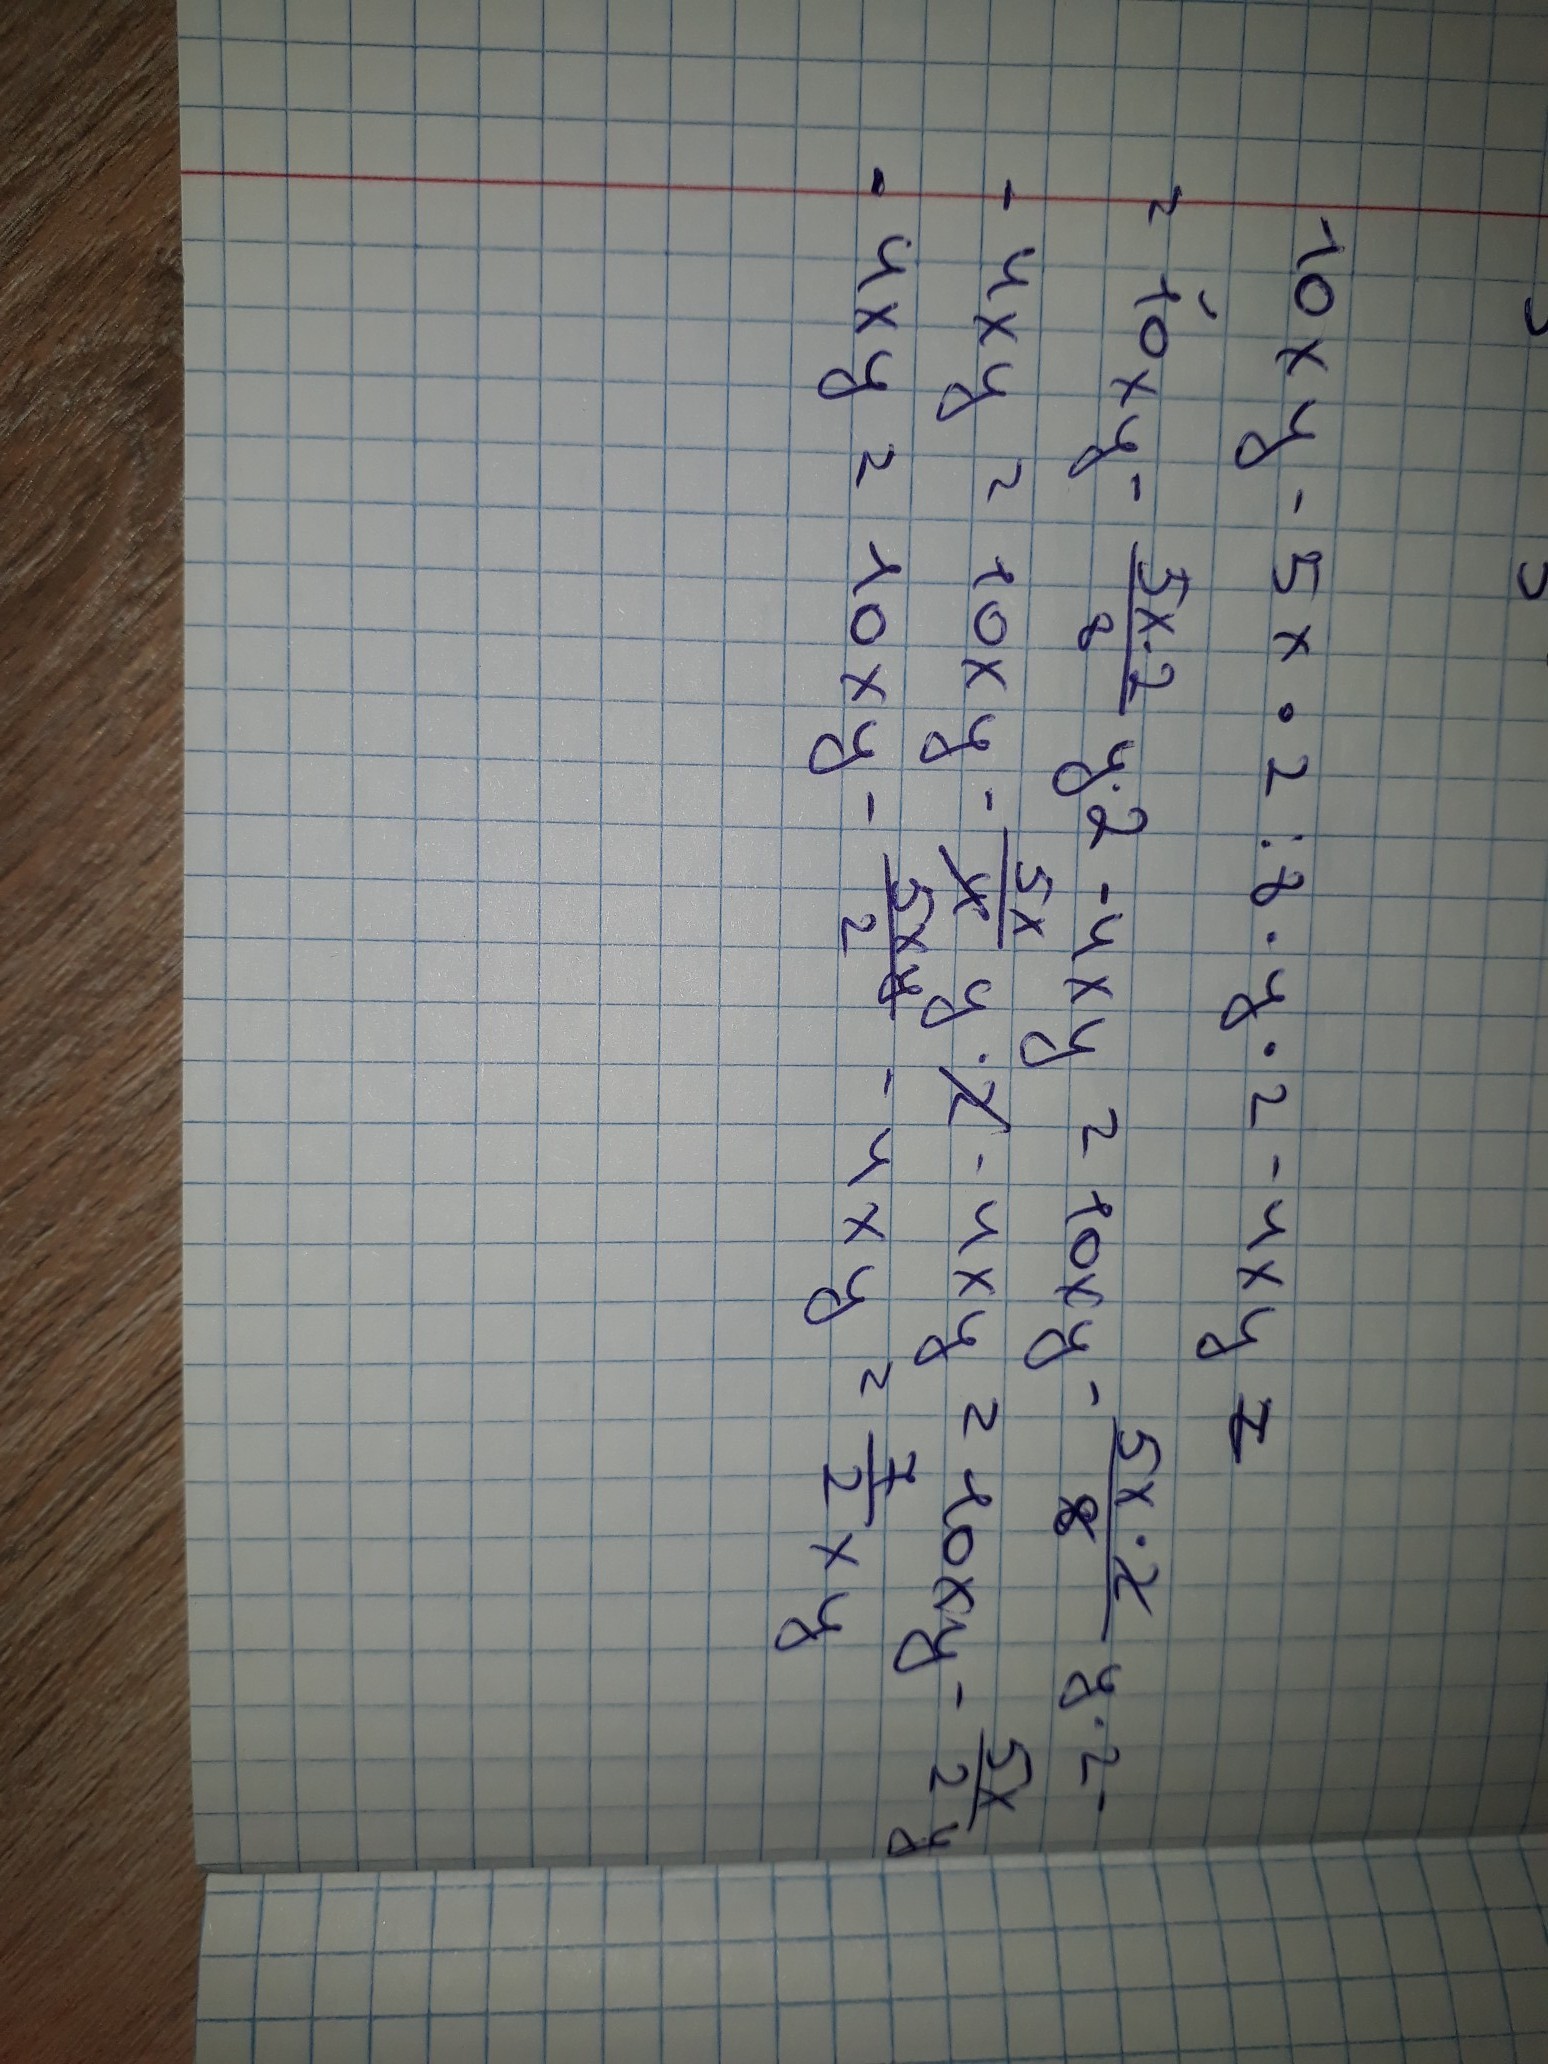 10xy - 5x · 2 : 8 · y · 2 - 4xy =
= 10xy - \frac{5x·2}{8} y·2 - 4xy = 10xy - \frac{5x·2}{8} y·2 -
- 4xy = 10xy - \frac{5x}{4} y · 2 - 4xy = 10xy - \frac{5x}{2} y
- 4xy = 10xy - \frac{5xy}{2} - 4xy = \frac{7}{2} xy